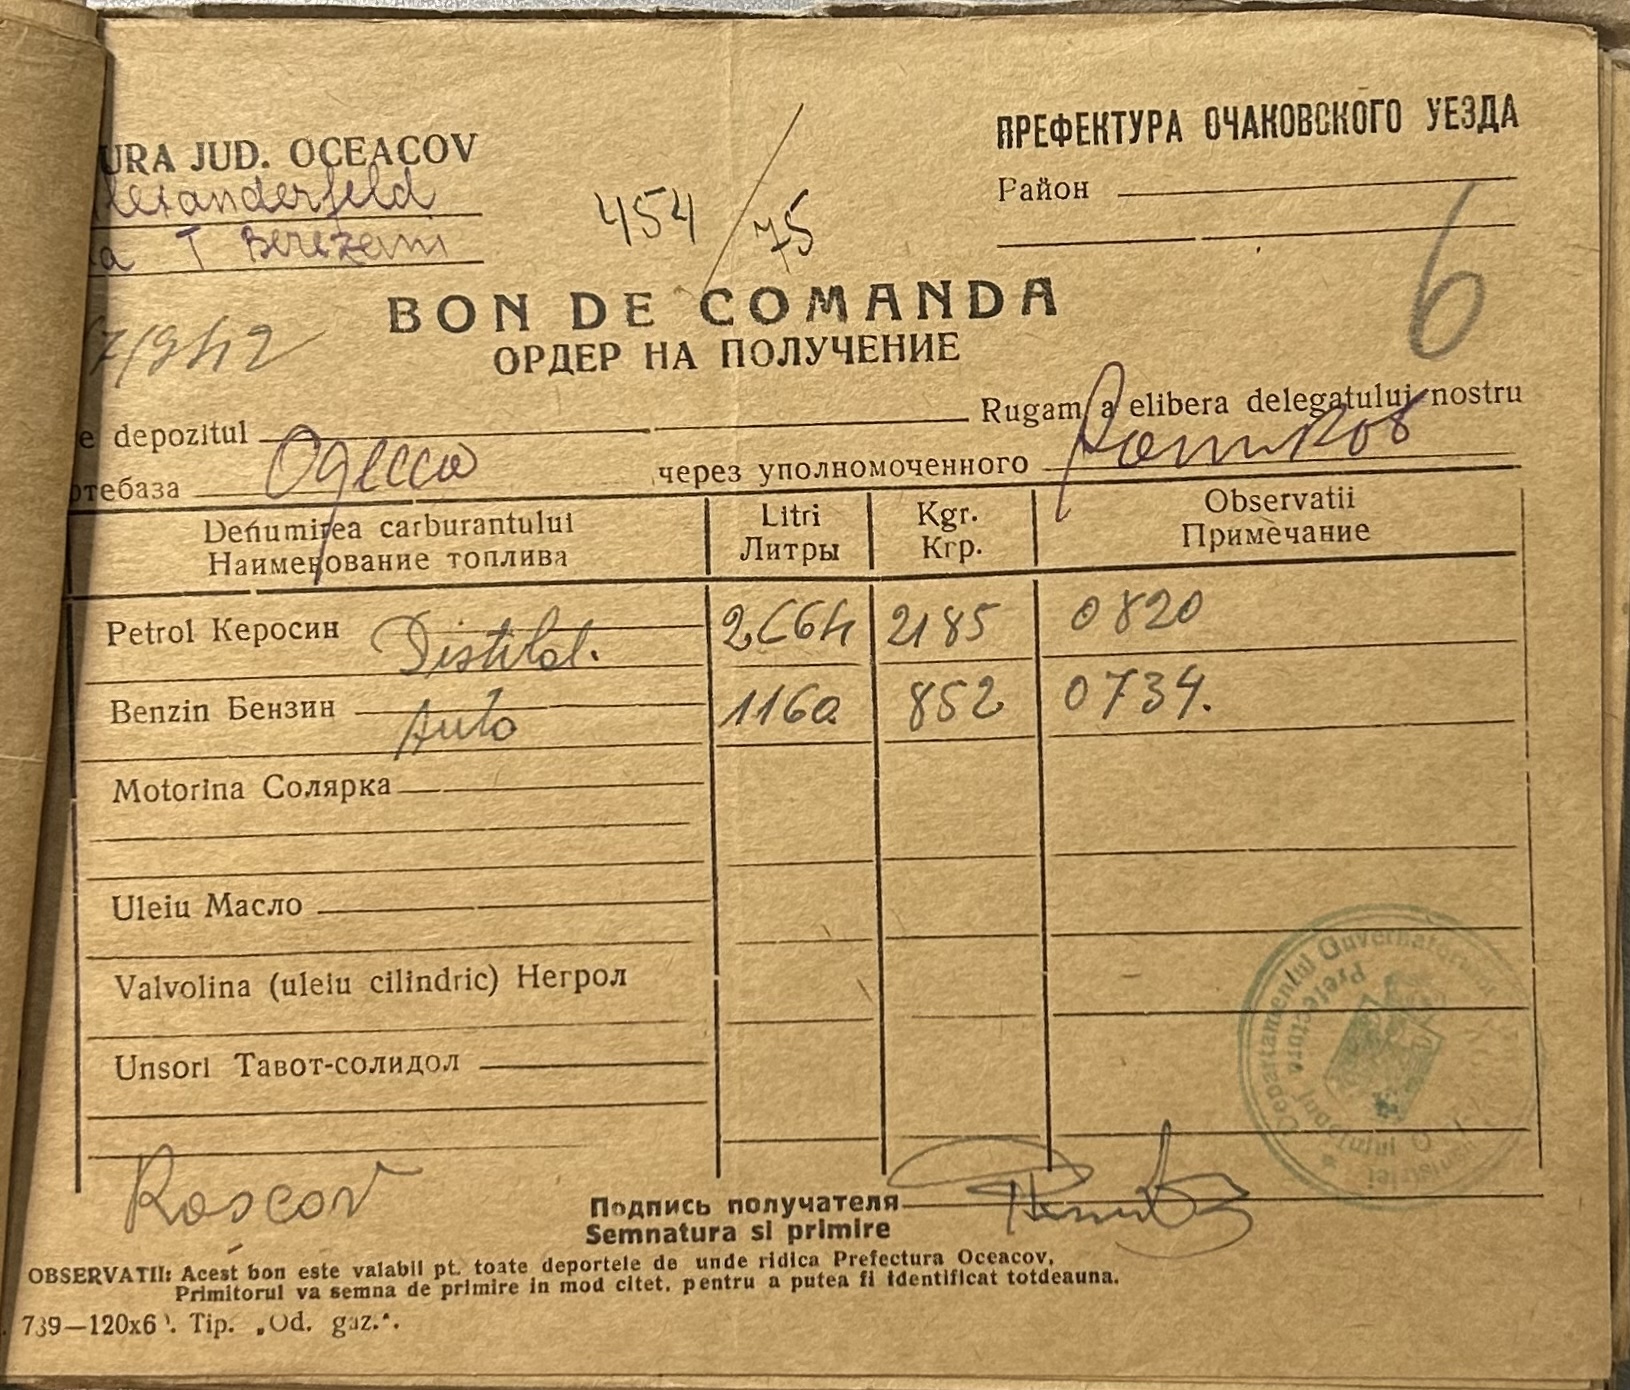 URA JUD. OCEACOV
ПРЕФЕКТУРА ОЧАКОВСКОГО УЕЗДА
lexanderfeld
Район
a T Berezani
454/75
6
BON DE COMANDA
7/942
ОРДЕР НА ПОЛУЧЕНИЕ
e depozitul Rugam a elibera delegatului nostru
ртебаза Одесса через уполномоченного
Denumirea carburantului Litri Kgr. Observatii
Наименование топлива Литры Кгр. Примечание
Petrol Керосин Distilat. 2664 2185 0820
Benzin Бензин Auto 1160 852 0734.
Motorina Солярка
Uleiu Масло
Valvolina (uleiu cilindric) Негрол
Unsori Тавот-солидол
Departamentul Guvernatorului
Prefectura
Roscov
Подпись получателя
Semnatura si primire
OBSERVATII: Acest bon este valabil pt. toate deportele de unde ridica Prefectura Oceacov,
Primitorul va semna de primire in mod citet, pentru a putea fi identificat totdeauna.
739—120x6 . Tip. „Od. gaz.“.